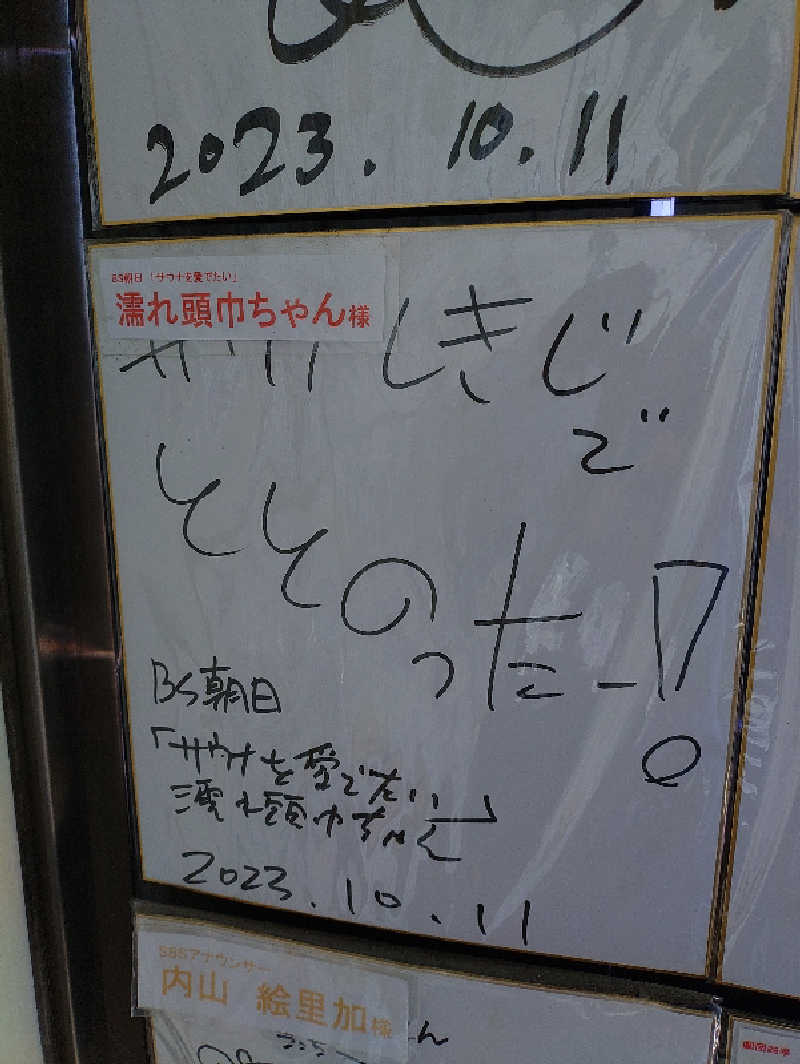 2023.10.11
BS朝日「サウナを愛でたい」
濡れ頭巾ちゃん様
しきじ
で
ととのったー!
BS朝日
「サウナを愛でたい」
濡れ頭巾ちゃん
2023.10.11
SBSアナウンサー
内山 絵里加様